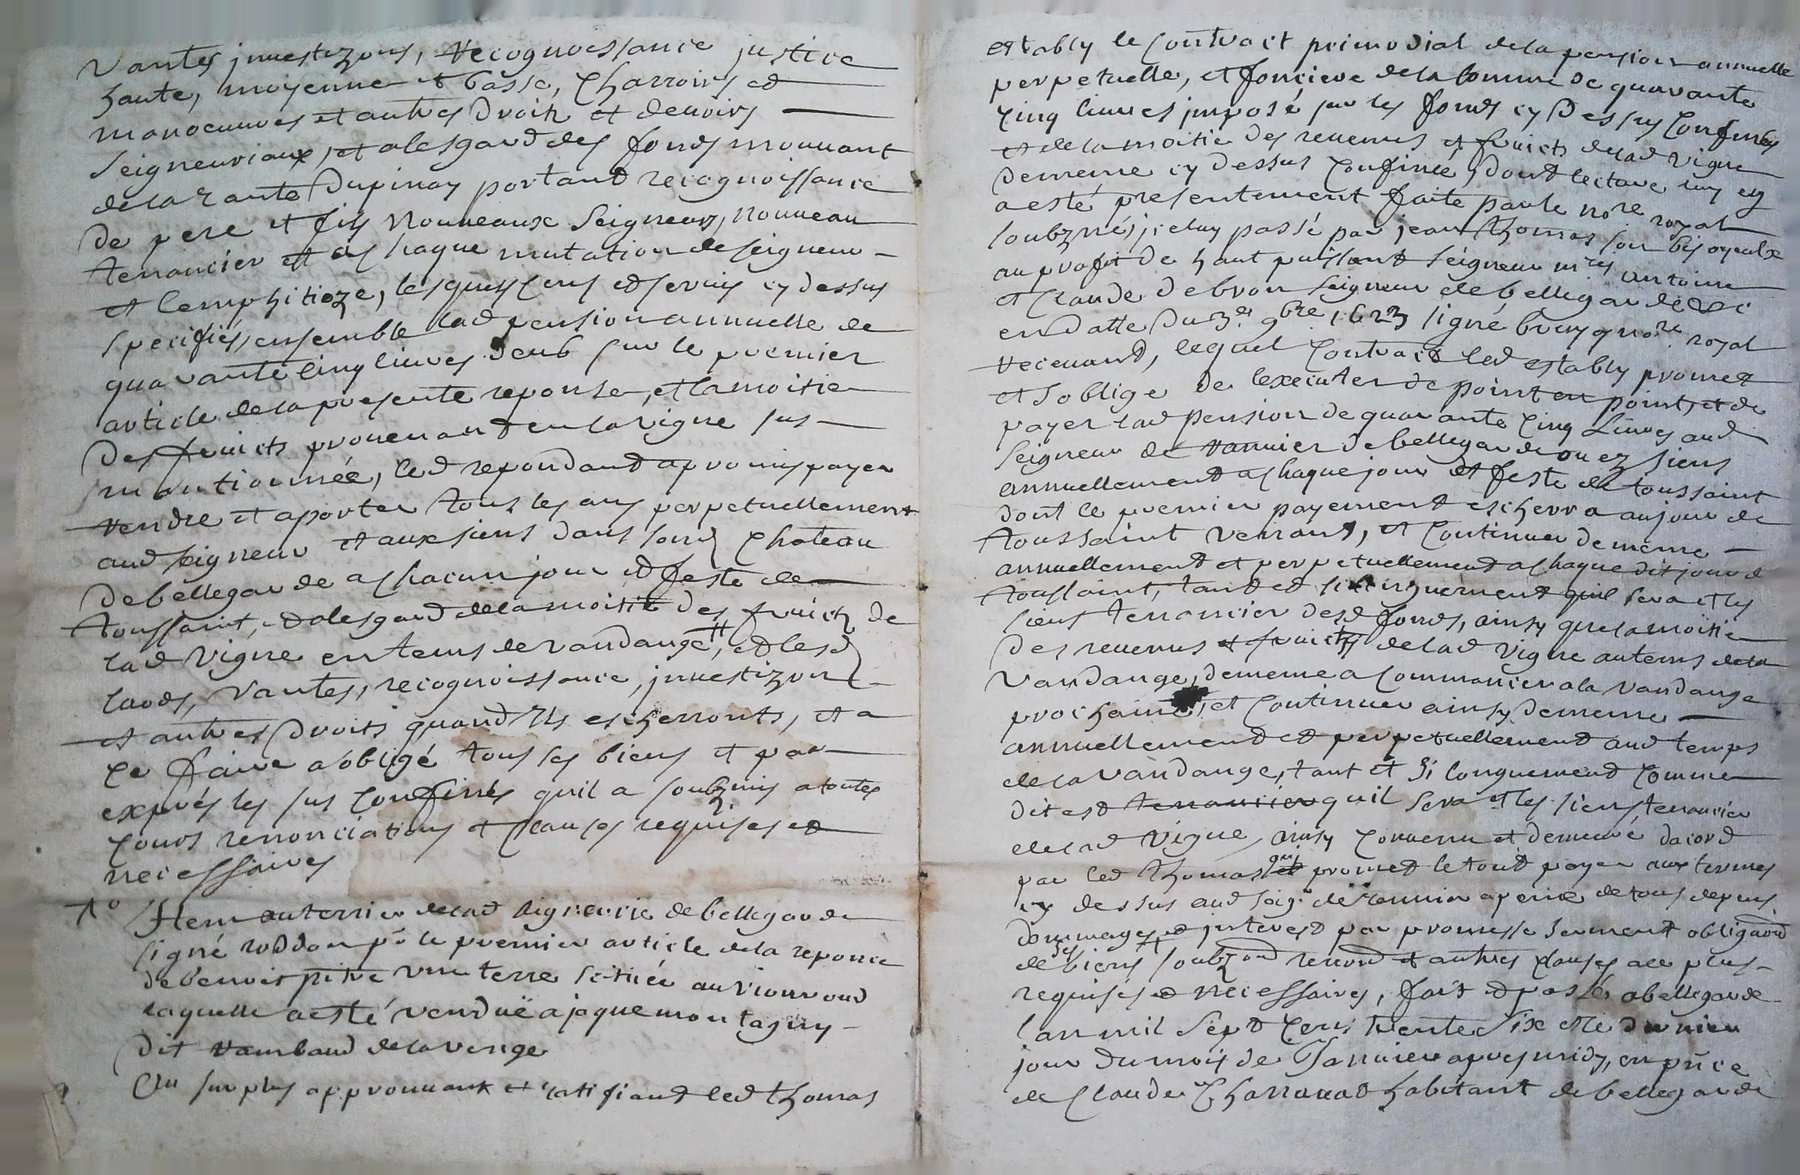 vantes, jnvestizons, recognoissance justice
haute, moyenne et basse, Charrois et
manoeuvres et autres droits et devoirs
seigneuriaux, et alesgard des fonds mouvant
de la rante Dupinay portant recognoissance
de pere et fils nouveaux seigneurs, nouveau
tenancier et a Chaque mutation de seigneur
et lemphitioze, lesquels Cens et servis cy dessus
specifiés, ensemble lad pension annuelle de
quarante cinq livres deub sur le premier
article de la presente reponse, et la moitie
des fruicts provenant en la vigne sus
mantionnée, led repondant a promis payer
rendre et aporter tous les ans perpetuellement
aud seigneur et aux siens dans sond Chateau
de bellegarde a Chacun jour et feste de
toussaint, et alesgard de la moitié des fruicts de
lad vigne en tems de vandange, et lesd
laods, vantes, recognoissance, jnvestizon
et autres droits quand ils escherronts, et a
ce faire a obligé tous ses biens et par
exprés les sus Confinés quil a soubzmis a toutes
Cours renonciations et Clauses requises et
necessaires
7o Item au terrier de lad seigneurie de bellegarde
signé roddon pr le premier article de la reponce
de benoist pitre une terre scituée au vionnond
laquelle a esté venduë a jaque montagny
dit rambaud de la verige
Au surplus approuvant et ratifiand led thomas
estably le Contract primordial de la pension annuelle
perpetuelle, et fonciere de la somme de quarante
Cinq livres jmposé sur les fonds cy dessus Confinés
et de la moitie des revenus et fruicts de lad vigne
de meme cy dessus Confinée, dont lecture luy en
a esté presentement faite par le nore royal
soubznés, jceluy passé par jean thomas son bisoyeulx
au profit de haut puissant seigneur mres antoine
et Claude de bron seigneur de bellegarde
en datte du 3e 9bre 1623 signé bruy nore royal
recevant, lequel Contract led estably promet
et soblige de lexecuter de point en point, et de
payer lad pension de quarante Cinq Livres aud
seigneur de vannier de bellegarde ou ez siens
annuellement a Chaque jour et feste de toussaint
dont le premier payement escherra au jour de
toussaint venant, et Continuer de meme
annuellement et perpetuellement a Chaque dit jour de
toussaint, tant et si longuement quil sera et les
siens tenancier desd fonds, ainsy que la moitie
des revenus et fruicts de lad vigne au tems de la
vandange, de meme a Commancer a la vandange
prochaine, et Continuer ainsy de meme
annuellement et perpetuellement aud temps
de la vandange, tant et si longuement Comme
dit est tenancier quil sera et les siens tenancier
de lad vigne, ainsy Convenu et demeuré dacord
par led thomas qui promet le tout payer aux termes
cy dessus aud seigr de vannier a peine de tous depens
dommages et jnterest par promesse serment obligaond
de ses biens soubzond renond et autres Clauses a ce plus
requises et necessaires, fait et passé a bellegarde
lan mil sept Cens trente six et le dernier
jour du mois de Janvier apres midy, en pnce
de Claude Charravat habitant de bellegarde